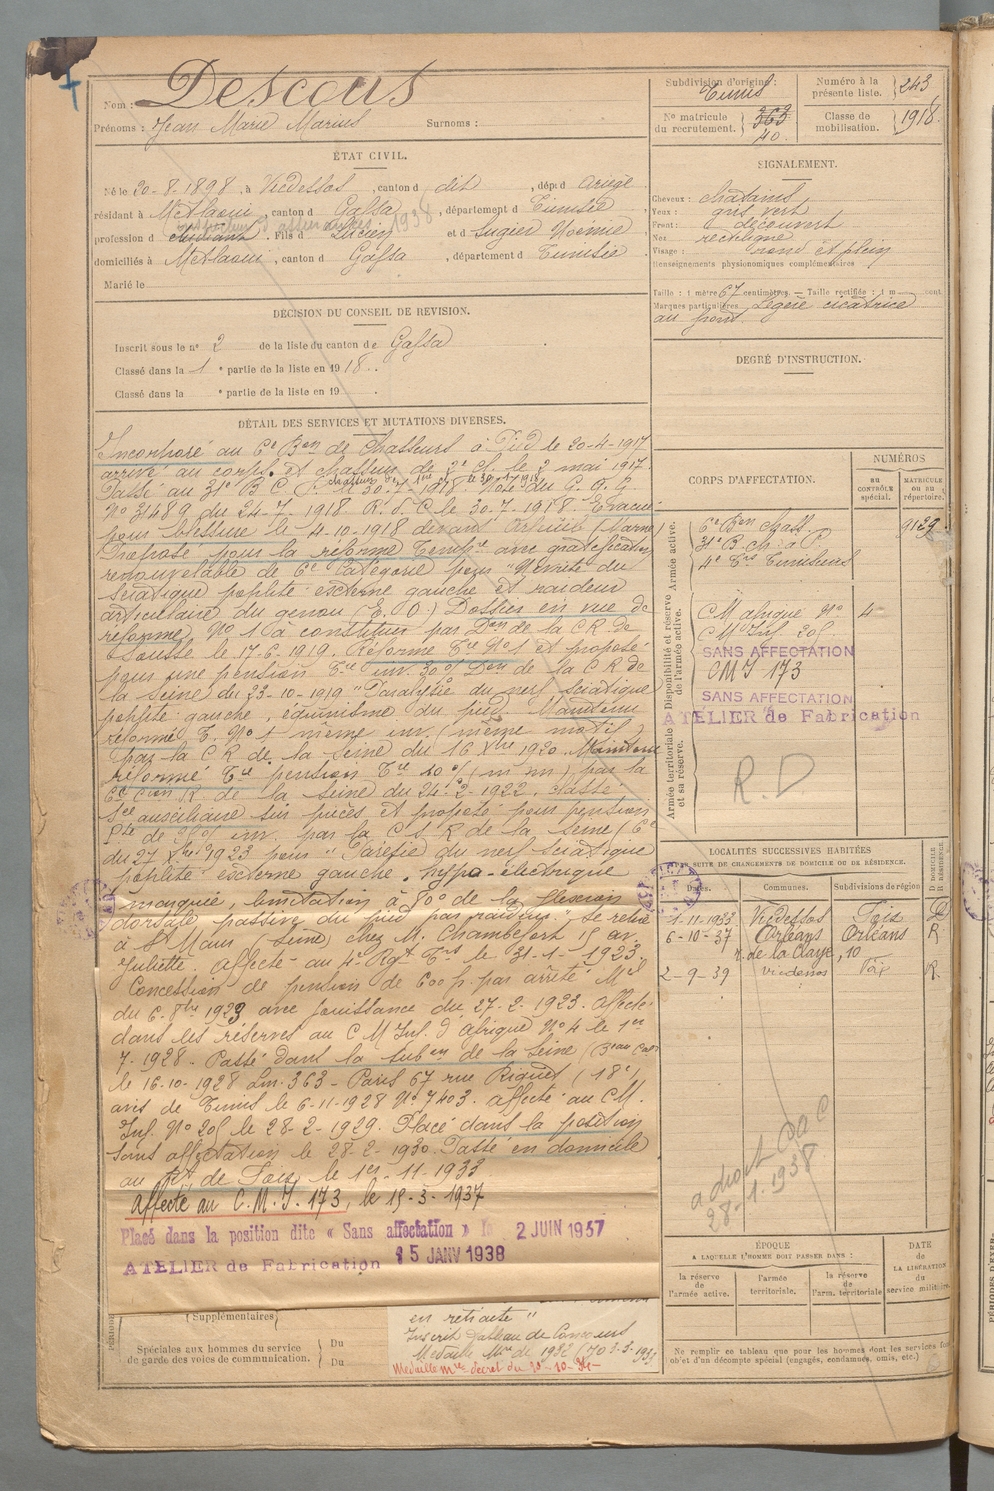 Nom : Descous
Prénoms : Jean Marie Marius Surnoms :
ÉTAT CIVIL.
Né le 20-8-1898, à Vicdessos, canton d dit, dép d Ariège
résidant à Metlaoui, canton d Gafsa, département d Tunisie
1938
profession d étudiant. Fils d Lucien et d Lugier Noemie
domiciliés à Metlaoui, canton d Gafsa, département d Tunisie
Marié le
DÉCISION DU CONSEIL DE REVISION.
Inscrit sous le n° 2 de la liste du canton de Gafsa
Classé dans la 1 e partie de la liste en 1918.
Classé dans la e partie de la liste en 19
DÉTAIL DES SERVICES ET MUTATIONS DIVERSES.
Incorporé au 6e Bon de Chasseurs à Pied le 20-4-1917
arrivé au corps et chasseur de 2e cl. le 2 mai 1917.
Passé au 31e B C P. le 30-7-1918. Note du G. Q. G
No 31489 du 24-7-1918 R. d. C le 30-7-1918. Evacué
pour blessure le 4-10-1918 devant (Marne)
Proposé pour la réforme Tempre avec gratification
renouvelable de 6e Catégorie pour "Névrite du
sciatique poplité externe gauche et raideur
articulaire du genou (E. O.) Dossier en vue de
réforme No 1 à constituer par Don de la C R de
Sousse le 17-6-1919. Réformé Tre No 1 et proposé
pour une pension Tre inv. 30% Don de la C R de
la Seine du 23-10-1919 "Paralysie du nerf sciatique
poplité gauche, équinisme du pied. Maintenu
réformé T. No 1 même inv. (même motif)
par la C R de la Seine du 16 Xbre 1920. Maintenu
réformé Tre pension Tre 20% (m m) par la
6e Cion R de la Seine du 24-2-1922. Classé
Sce auxiliaire sur pièces et proposé pour pension
Pte de inv. par la C S R de la Seine (6e
du 27 Xbre 1923 pour "Parésie du nerf sciatique
poplité externe gauche. hypo-électrique
marquée, limitation à 80° de la flexion
dorsale passive du pied par raideur." Se retire
à St Maur (Seine) chez M. Chambefort 15 av.
Juliette. Affecté au 4e Rgt Trs le 31-1-1923.
Concession de pension de 600 f. par arrêté Mel
du 6. 8bre 1923 avec jouissance du 27-2-1923. Affecté
dans les réserves au C M Inf. d'Afrique No 4 le 1er
7-1928. Passé dans la subon de la Seine (Beau Cal)
le 16-10-1928 Lm. 363 - Paris 67 rue Riquet (18e)
avis de Tunis le 6-11-1928 No 7403. Affecté au CM.
Inf. No 205 le 28-2-1929. Placé dans la position
sans affectation le 28-2-1930. Passé en domicile
au de Foix le 1er-11-1933
Affecté au C.M.I. 173, le 15-3-1937
Placé dans la position dite « Sans affectation » le 2 JUIN 1937
ATELIER de Fabrication 15 JANV 1938
(Supplémentaires)
Spéciales aux hommes du service
de garde des voies de communication.
Du
Du
en retraite"
Inscrit Tableau de Concours
Médaille Mre de 1932 (JO 3-3-1933
Médaille mre décret du
Subdivision d'origine :
Tunis
Numéro à la
présente liste. 243
No matricule
du recrutement. 363
40
Classe de
mobilisation. 1918.
SIGNALEMENT.
Cheveux : chatains
Yeux : gris vert
Front : découvert
Nez rectiligne
Visage : rond et plein
Renseignements physionomiques complémentaires
Taille : 1 mètre 67 centimètres. — Taille rectifiée : 1 m cent.
Marques particulières Légère cicatrice
au front
DEGRÉ D'INSTRUCTION.
CORPS D'AFFECTATION.
NUMÉROS
AU CONTRÔLE spécial.
MATRICULE OU AU répertoire.
Armée active.
6e Bon chass.
31e B ch. à P 9129
4e Trs Tunisiens
Disponibilité et réserve
de l'armée active.
C M afrique No 4
C M Inf 205
SANS AFFECTATION
CM I 173
SANS AFFECTATION
ATELIER de Fabrication
Armée territoriale
et sa réserve.
R.D
LOCALITÉS SUCCESSIVES HABITÉES
PAR SUITE DE CHANGEMENTS DE DOMICILE OU DE RÉSIDENCE.
Dates. Communes. Subdivisions de région
D DOMICILE
R RÉSIDENCE
1-11-1933 Vicdessos Foix D
6-10-37 Orléans Orléans R
r. de la Claye, 10
2-9-39 Vicdessos Foix R.
a droit
28-1-1938
ÉPOQUE
A LAQUELLE L'HOMME DOIT PASSER DANS :
la réserve
de l'armée active.
l'armée
territoriale.
la réserve de
l'arm. territoriale
DATE
de
LA LIBÉRATION
du
service militaire
Ne remplir ce tableau que pour les hommes dont les services font
obj'et d'un décompte spécial (engagés, condamnés, omis, etc.)